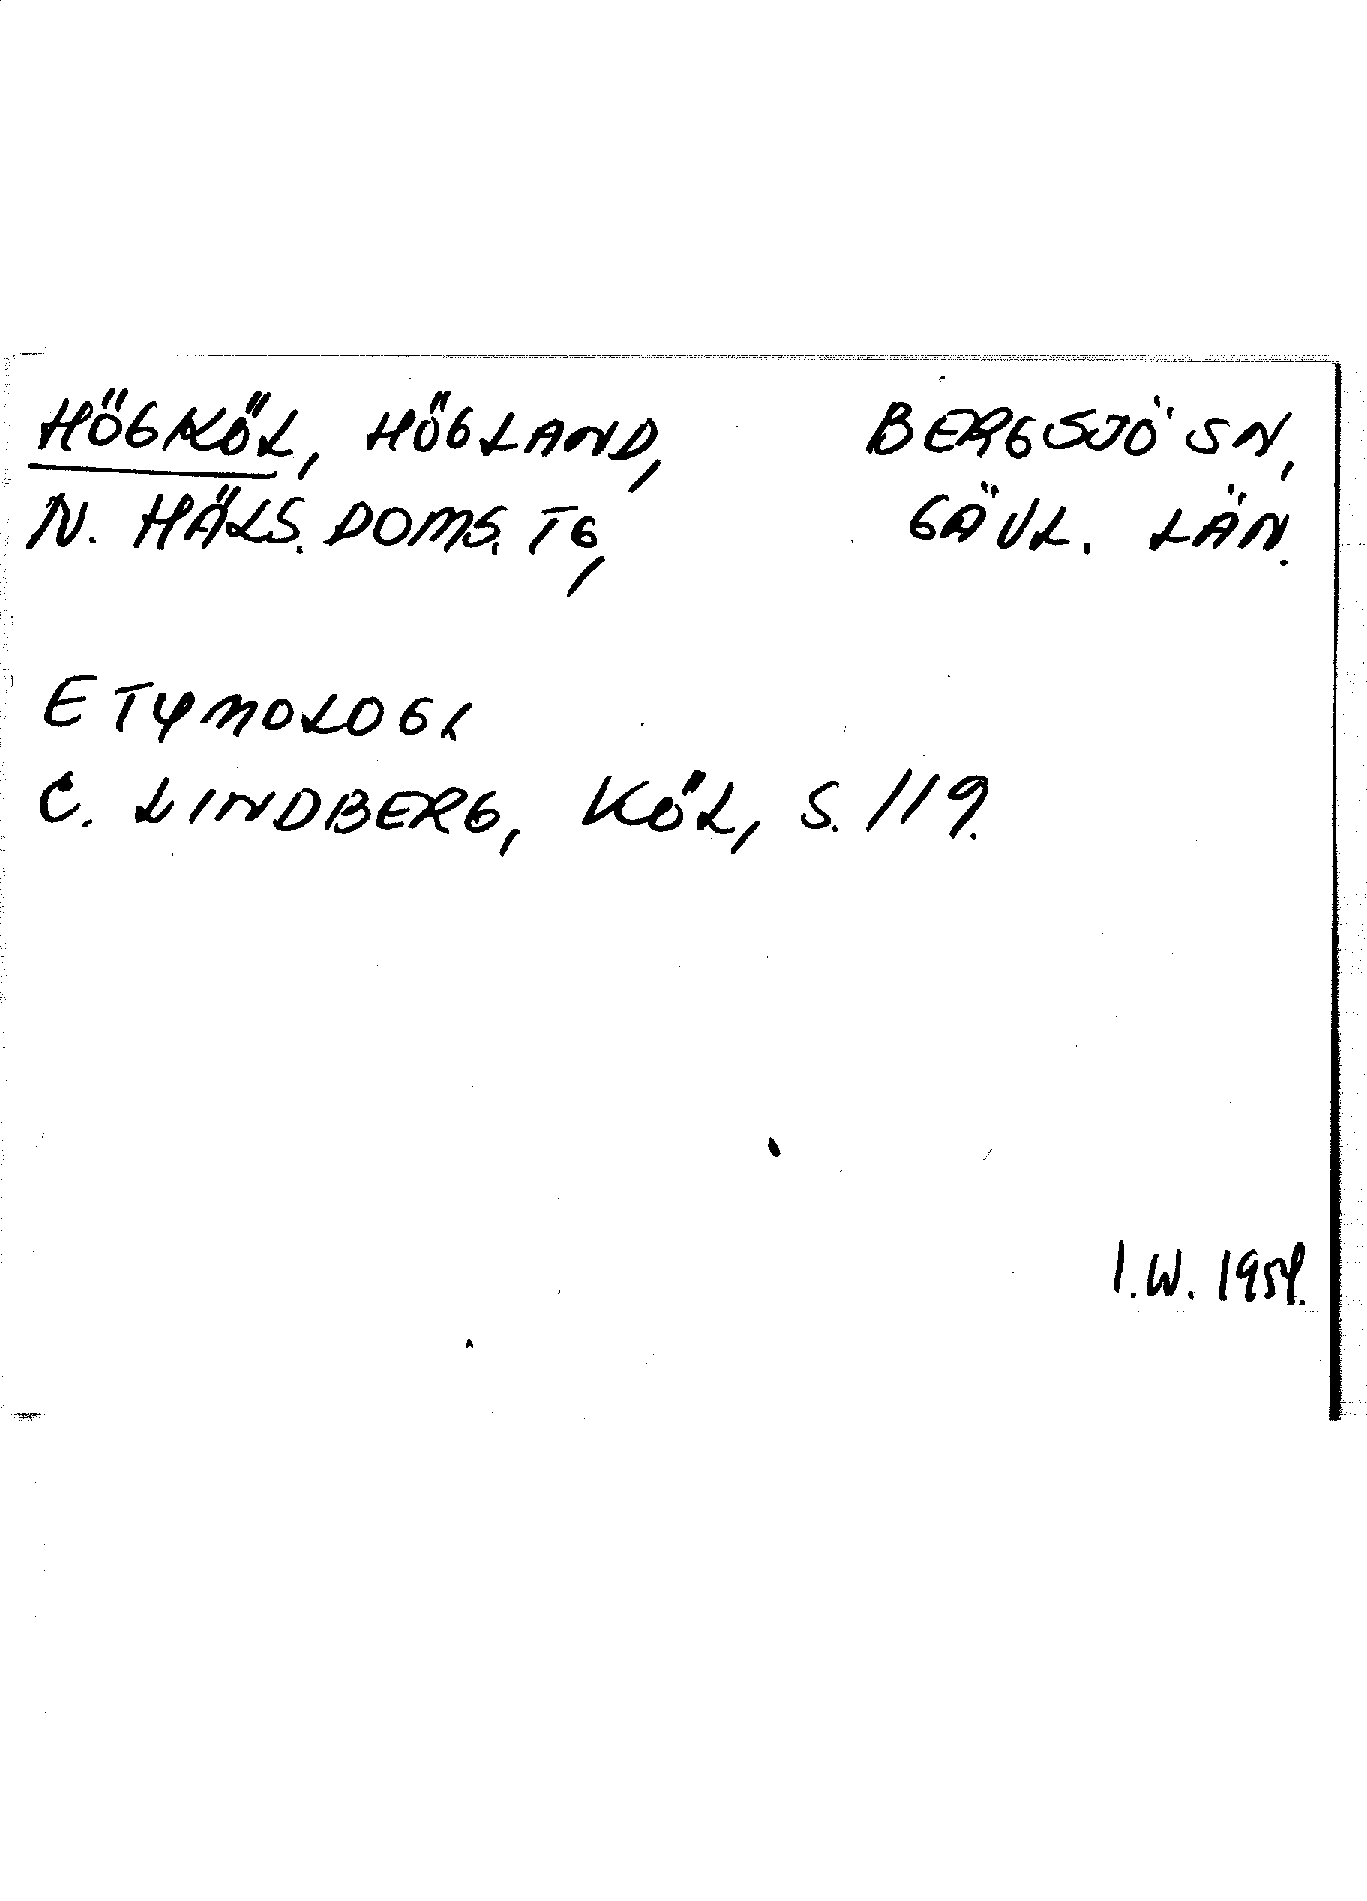 HÖGKÖL, HÖGLAND, BERGSJÖ SN,
N. HÄLS. DOMS. TG, GÄVL. LÄN.
ETYMOLOGI
C. LINDBERG, KÖL, S. 119.
I.W. 1954.